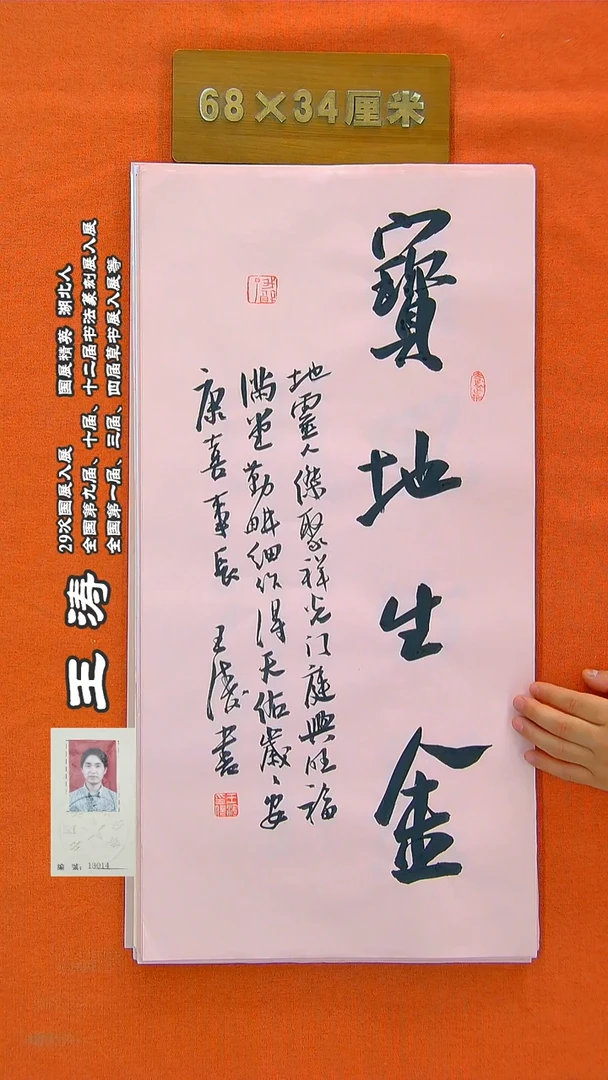 68×34厘米
寶地生金
地靈人傑聚祥光门庭興旺福
满堂勤耕细作得天佑歲歲安
康喜事長 王涛書
王涛
29次国展入展 国展精英 湖北人
全国第九届、十届、十二届书法篆刻展入展
全国第一届、三届、四届草书展入展等
编號:13014